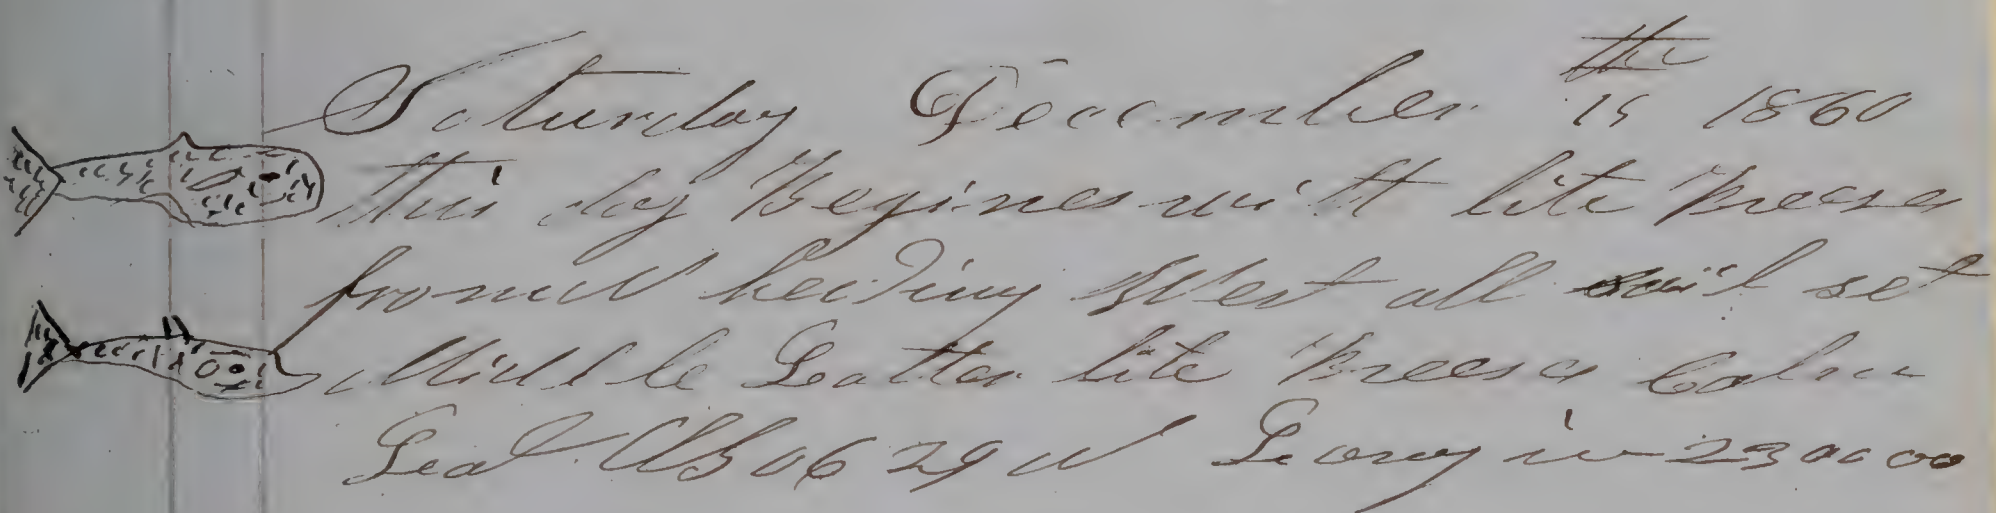 Saturday December 15th 1860
this day Begines with lite Breeses
from N heading West all sail set
Middle Latter lite Breeses Calm
Lat 06 29 N Long in 23 00 00